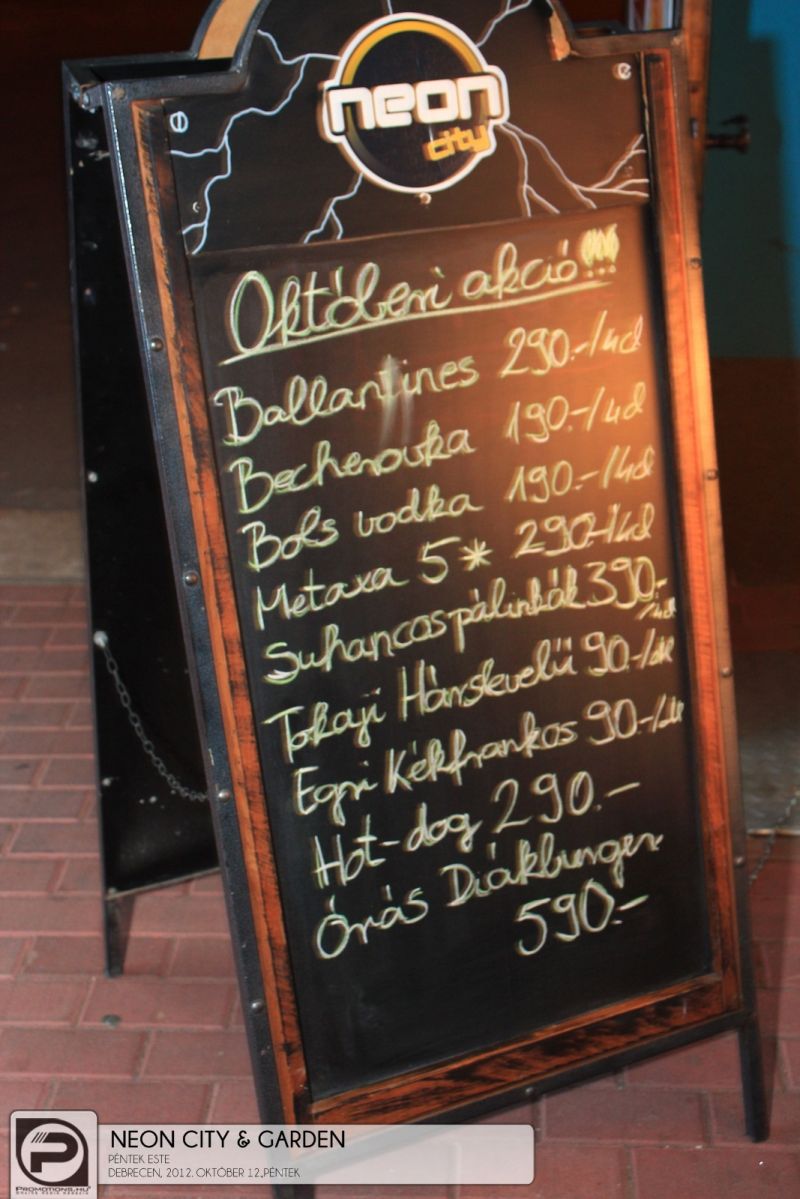 neon
city
Októberi akció!!!
Ballantines 290.-/4cl
Becherovka 190.-/4cl
Bols vodka 190.-/4cl
Metaxa 5* 290.-/4cl
Suhancos pálinkák 390.-
/4cl
Tokaji Hárslevelű 90.-/dl
Egri Kékfrankos 90.-/dl
Hot-dog 290.-
Órás Diákburger
590.-
NEON CITY & GARDEN
PÉNTEK ESTE
DEBRECEN, 2012. OKTÓBER 12.,PÉNTEK
PROMOTIONS.HU